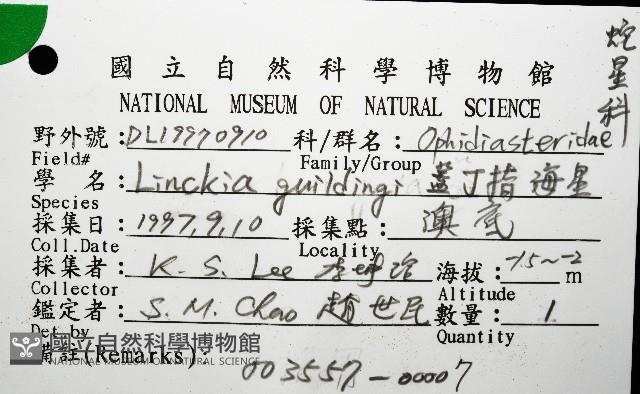 蛇星科
國立自然科學博物館
NATIONAL MUSEUM OF NATURAL SCIENCE
野外號:DL19970910 科/群名:Ophidiasteridae
Field# Family/Group
學 名:Linckia guildingi 蓋丁指海星
Species
採集日:1997,9,10 採集點:澳底
Coll.Date Locality
採集者:K. S. Lee 李坤瑄 海拔:-15~-2 m
Collector Altitude
鑑定者:S. M. Chao 趙世民 數量:1
Det.by Quantity
備註(Remarks):
國立自然科學博物館
NATIONAL MUSEUM OF NATURAL SCIENCE
003557-00007